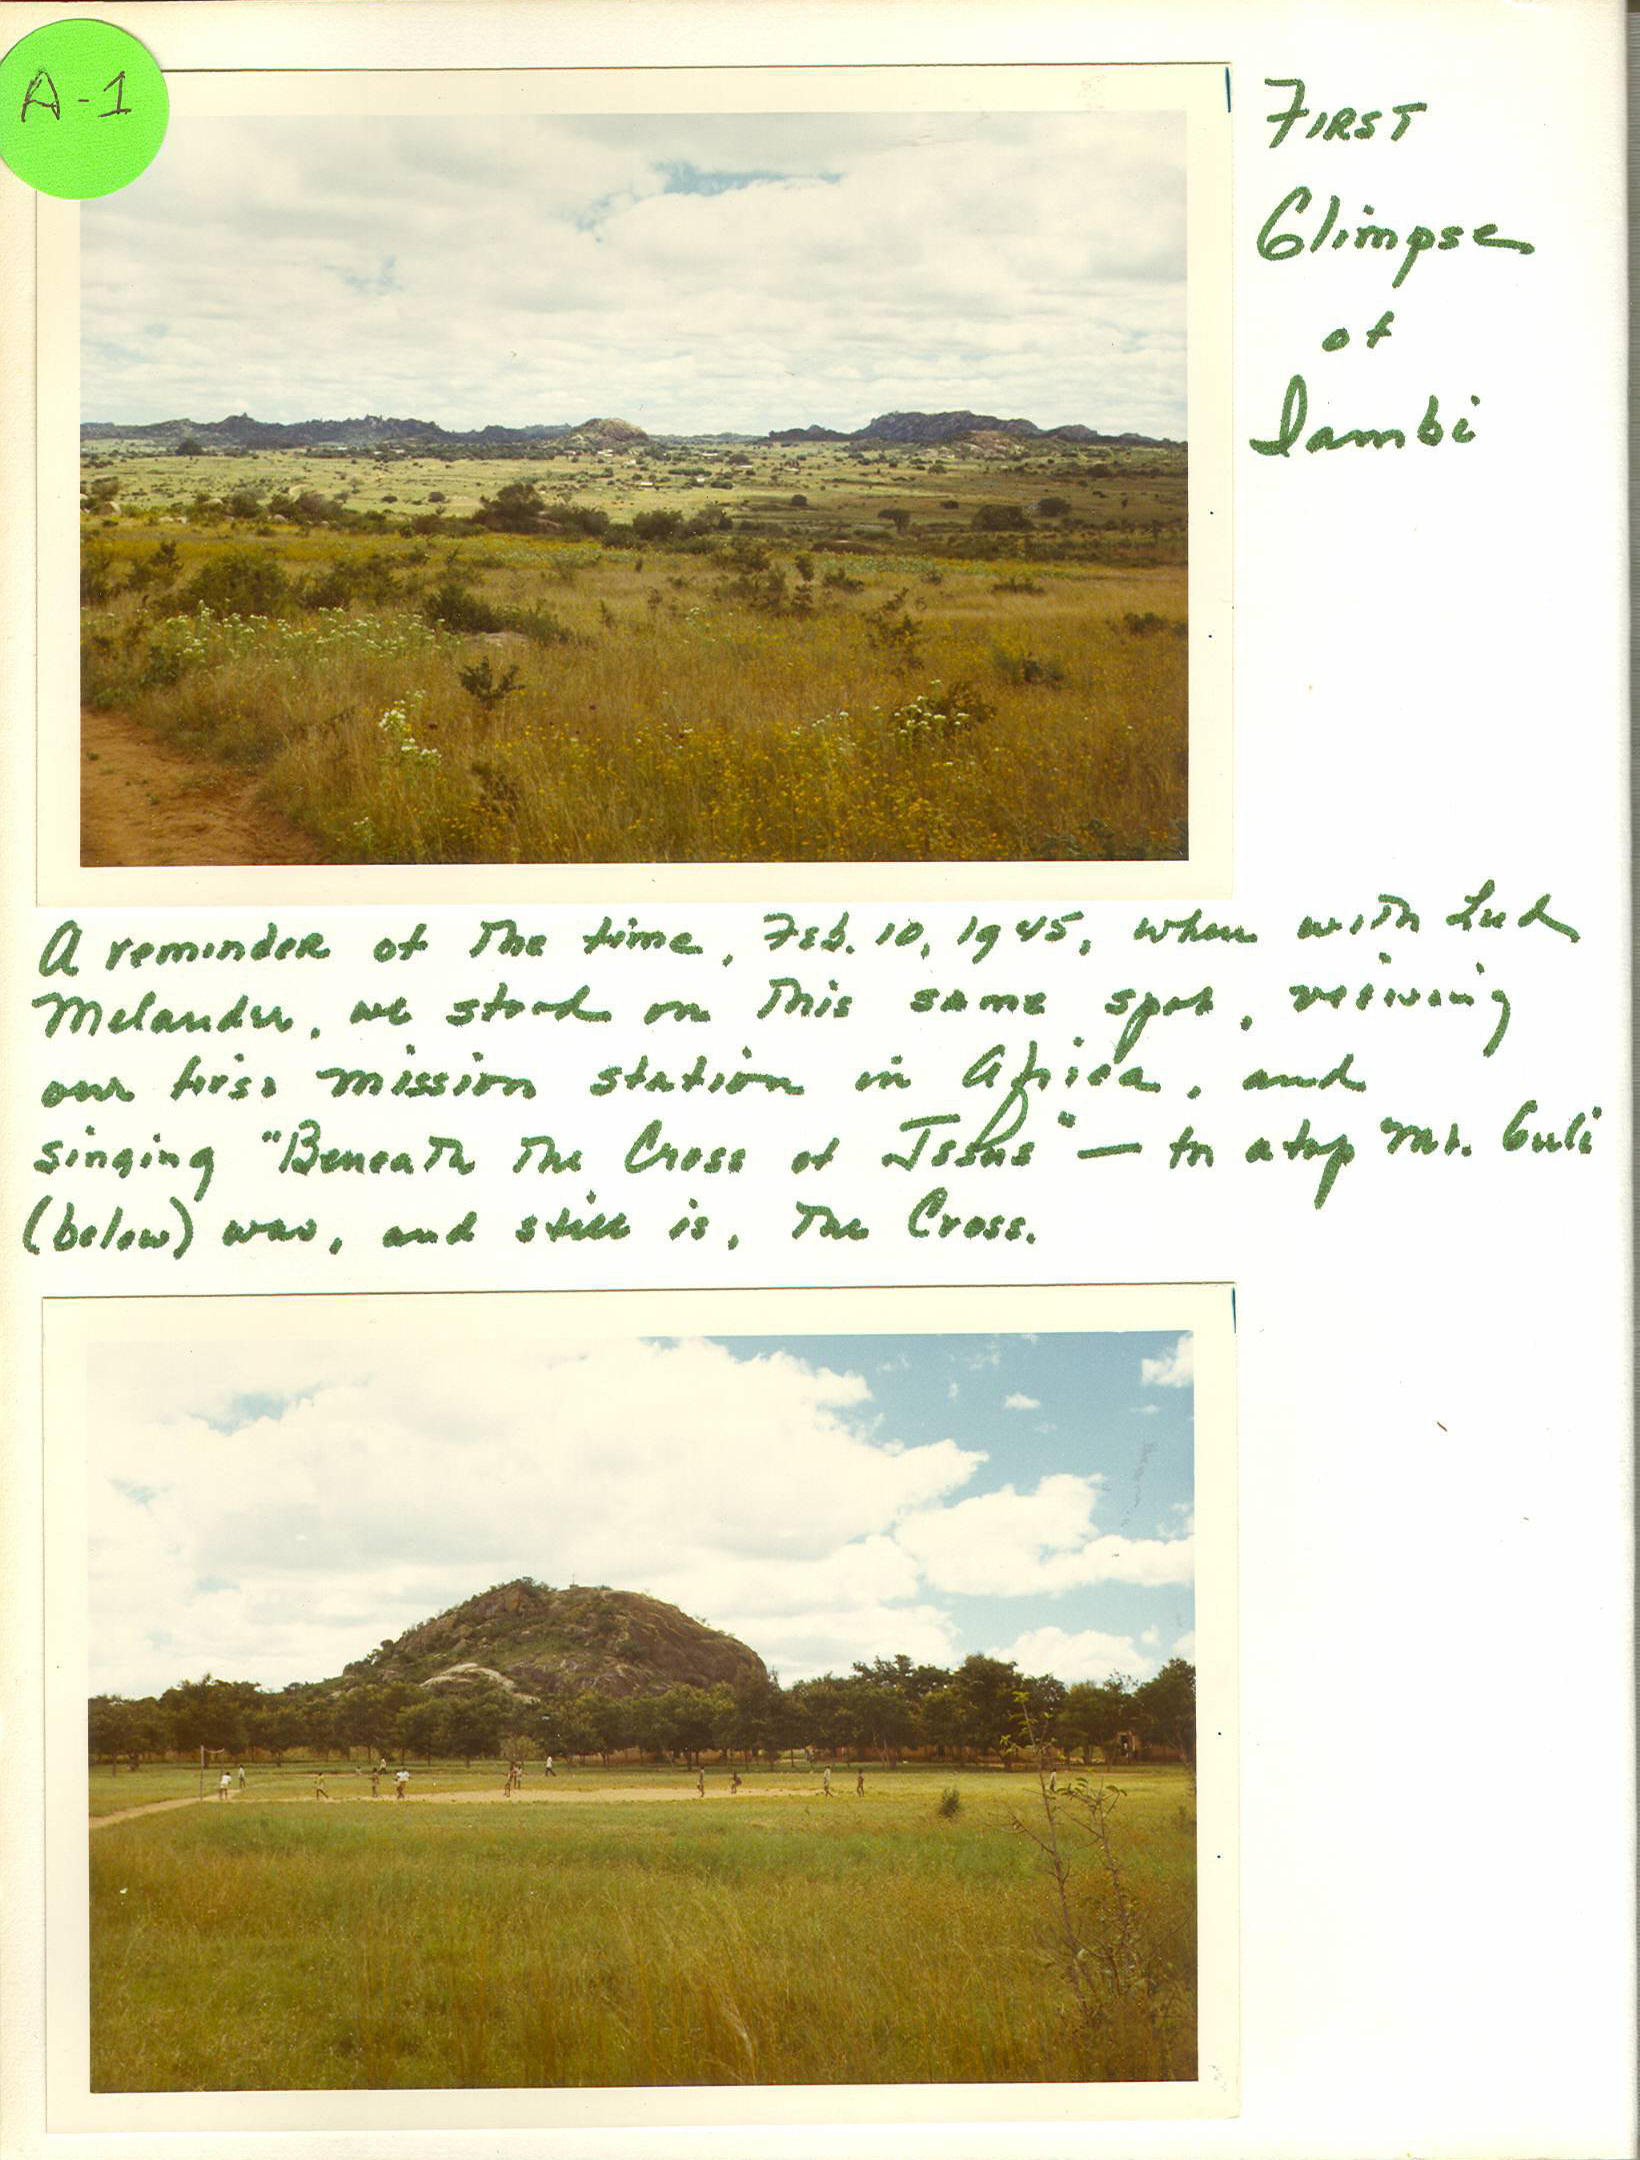 A-1
FIRST
Glimpse
of
Iambi
A reminder of the time, Feb. 10, 1945, when with Lud
Melander, we stood on this same spot, reviving
our first mission station in Africa, and
singing "Beneath the Cross of Jesus" — for atop Mt. Guli
(below) was, and still is, the Cross.